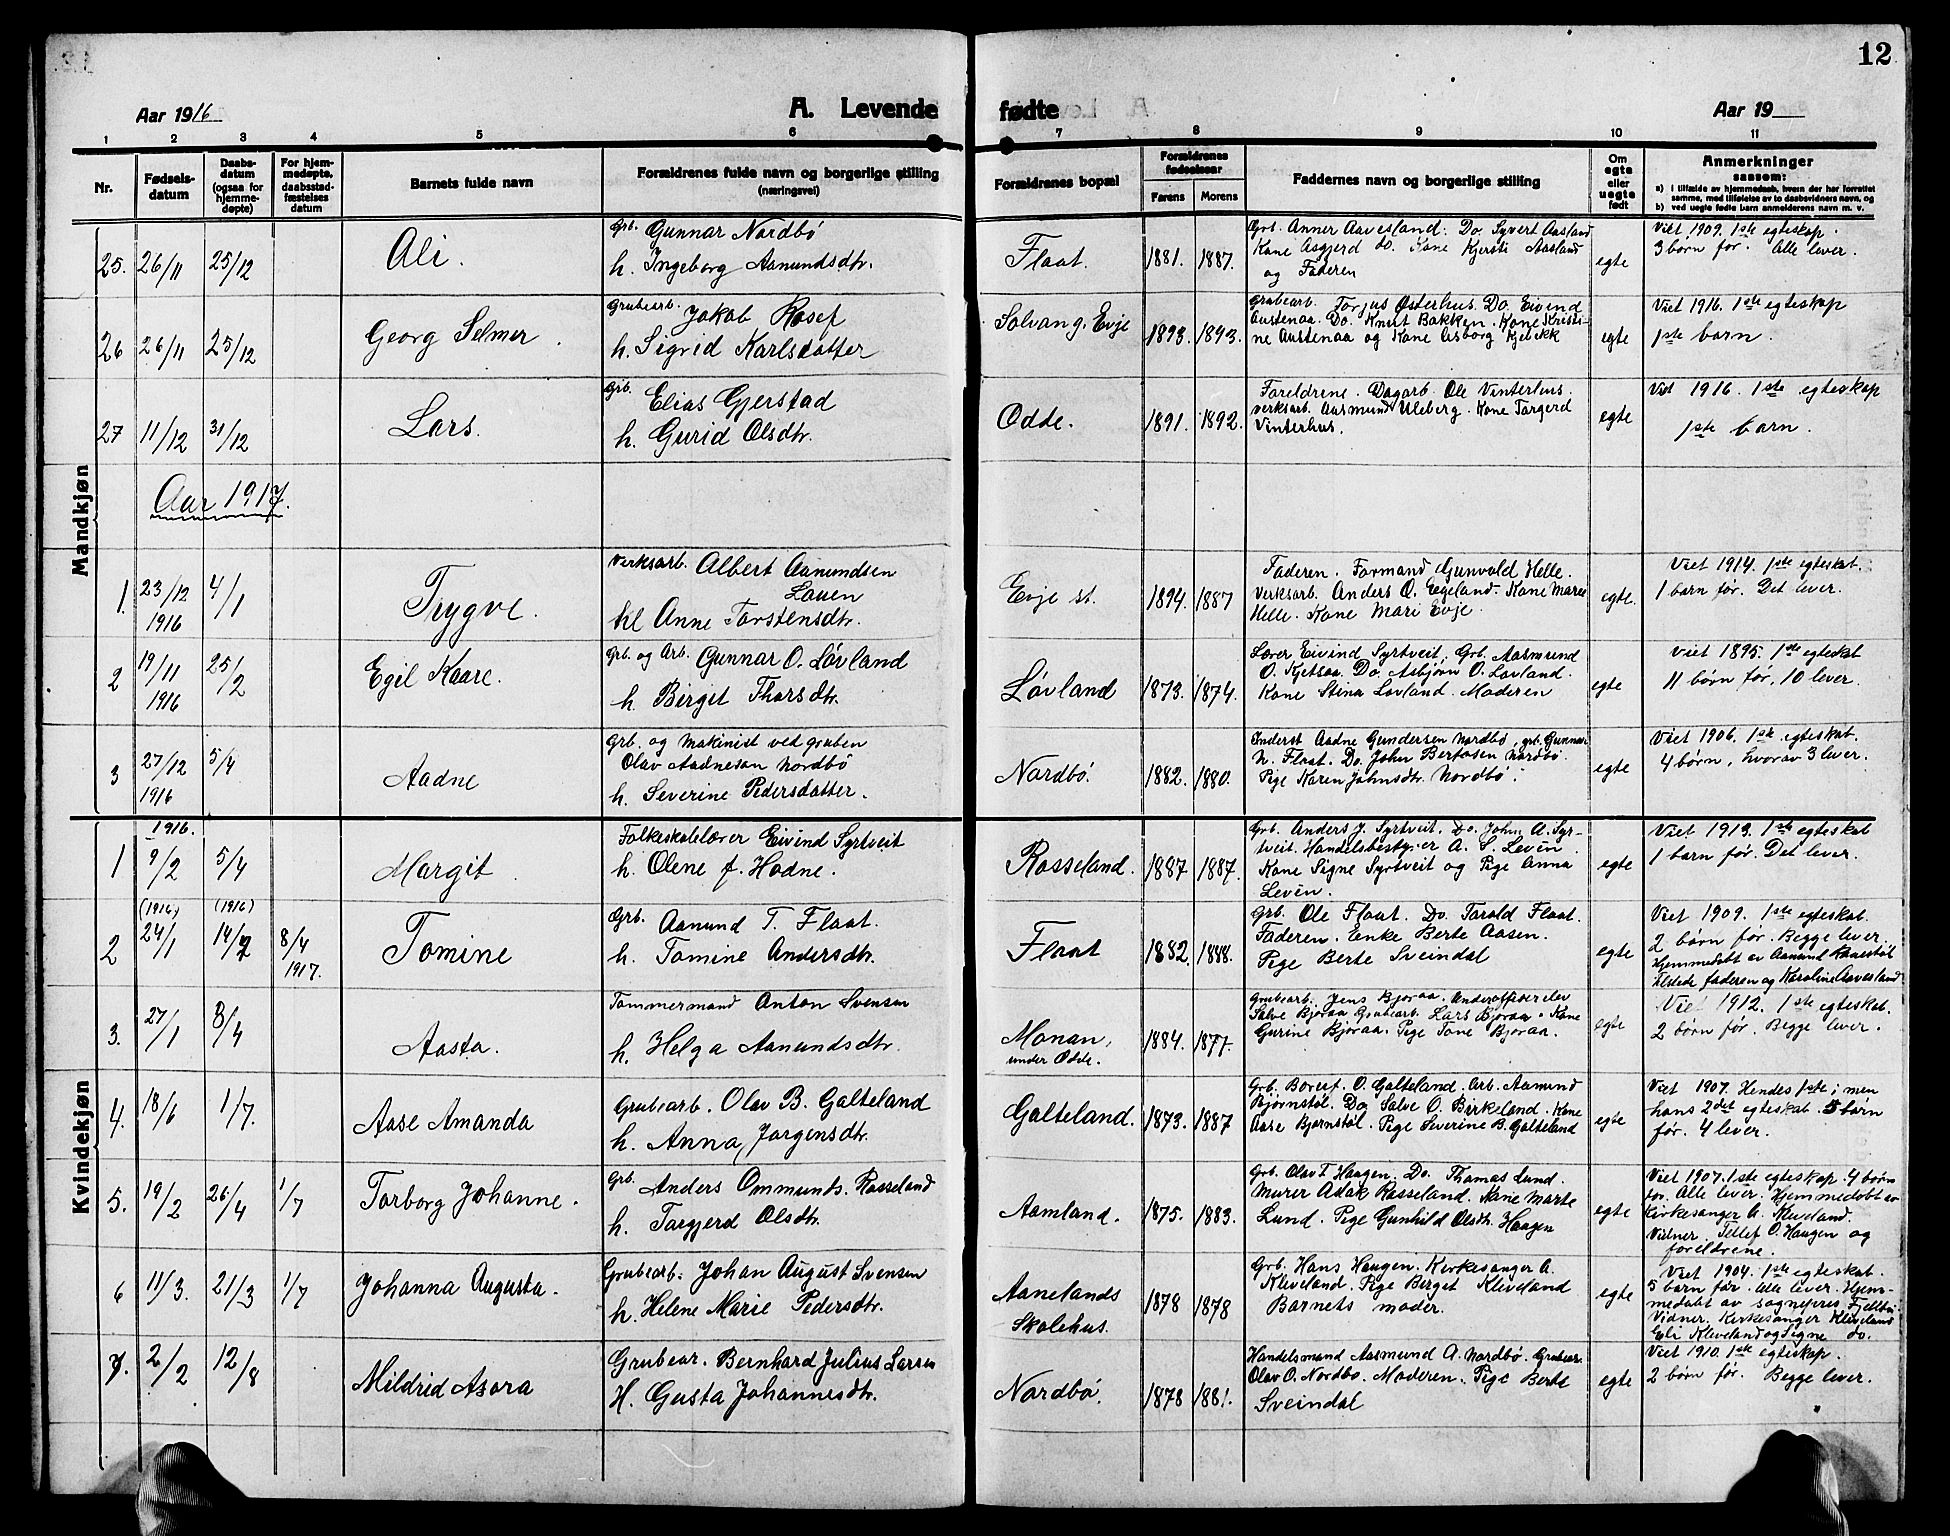 12
Aar 1916 A. Levende fødte Aar 19
1 2 3 4 5 6 7 8 9 10 11
Nr. Fødsels-datum Daabs-datum (ogsaa for hjemme-døpte) For hjem-medøpte, daabsstad-fæstelses datum Barnets fulde navn Forældrenes fulde navn og borgerlige stilling (næringsvei) Forældrenes bopæl Forældrenes fødselsaar Farens Morens Faddernes navn og borgerlige stilling Om egte eller uegte født Anmerkninger saasom:
a) i tilfælde av hjemmedaab, hvem der har forrettet samme, med tilføielse av to daabsvidners navn, og
b) ved uegte fødte barn anmelderens navn m. v.
Mandkjøn
25. 26/11 25/12 Ali. Grb. Gunnar Nordbø
h. Ingeborg Aanundsdtr. Flaat. 1881. 1887. Grb. Anner Aavesland. Do. Syvert Aasland
Kone Asgjerd do. Kone Kjersti Aasland
og Faderen egte Viet 1909. 1ste egteskap.
3 børn før. Alle lever.
26 26/11 25/12 Georg Selmer. Grubearb. Jakob Rosef
h. Sigrid Karlsdatter Solvang, Evje 1893. 1893. Grubearb. Torjus Østerhus. Do. Eivind
Austenaa. Do. Knut Bakken. Kone Kristi-
ne Austenaa og Kone Asborg Kjebekk egte Viet 1916. 1ste egteskap
1ste barn.
27 11/12 31/12 Lars. Grb. Elias Gjerstad
h. Gurid Olsdtr. Odde. 1891. 1892. Foreldrene. Dagarb. Ole Vinterhus.
Verksarb. Aasmund Uleberg. Kone Torgerd
Vinterhus. egte Viet 1916. 1ste egteskap
1ste barn.
Aar 1917.
1. 23/12 1916 4/1 Trygve. Verksarb. Albert Aanundsen
Lauen
hl Anne Torstensdtr. Evje st. 1894. 1887 Faderen. Formand Gunvald Helle.
Verksarb. Anders O. Egeland. Kone Maren
Helle. Kone Mari Evje. egte. Viet 1914. 1ste egteskab.
1 barn før. Det lever.
2 19/11 1916 25/2 Egil Kaare. Grb. og Arb. Gunnar O. Løvland
h. Birgit Thorsdtr. Løvland 1873. 1874. Lærer Eivind Syrtveit, Grb. Aasmund
O. Kjetsaa. Do. Asbjørn O. Løvland.
Kone Stina Løvland. Moderen egte Viet 1895. 1ste egteskab
11 børn før, 10 lever.
3 27/12 1916 5/4 Aadne Grb. og Makinist ved gruben
Olav Aadneson Nordbø
h. Severine Pedersdatter. Nordbø. 1882. 1880. Inderst Aadne Gundersen Nordbø, grb. Gunnar
N. Flaat. Do. John Bertosen Nordbø.
Pige Karen Johnsdtr. Nordbø. egte Viet 1906. 1ste egteskab.
4 børn, hvorav 3 lever.
Kvindekjøn
1 1916. 9/2 5/4 Margit. Folkeskolelærer Eivind Syrtveit
h. Olene f. Hodne. Rosseland. 1887 1887. Grb. Anders J. Syrtveit. Do. John A. Syr-
tveit. Handelsbestyrer A. S. Levén.
Kone Signe Syrtveit og Pige Anna
Levén. egte Viet 1913. 1ste egteskab
1 barn før. Det lever.
2 (1916) 24/1 (1916) 14/2 8/4 1917. Tomine Grb. Aanund T. Flaat.
h. Tomine Andersdtr. Flaat 1882. 1888. Grb. Ole Flaat. Do. Torald Flaat.
Faderen. Enke Berte Aasen.
Pige Berte Sveindal egte Viet 1909. 1ste egteskab.
2 børn før. Begge lever.
Hjemmedøbt av Aanund Kanestøl
tilstede faderen og Karoline Aavesland
3. 27/1 8/4 Aasta. Tømmermand Anton Svensen
h. Helga Aanundsdtr. Monan,
under Odde. 1884. 1877. Grubearb. Jens Bjoraa. Underofficerelev
Salve Bjoraa Grubearb. Lars Bjoraa. Kone
Gurine Bjoraa. Pige Tone Bjoraa. egte Viet 1912. 1ste egteskab.
2 børn før. Begge lever.
4. 18/6 1/7. Aase Amanda Grubearb. Olav B. Galteland
h. Anna Jørgensdtr. Galteland. 1873. 1887 Grb. Boresf. O. Galteland. Arb. Aamund
Bjørnstøl. Do Salve O. Birkeland. Kone
Aase Bjørnstøl. Pige Severine B. Galteland egte Viet 1907. Hendes 1ste; men
hans 2det egteskab. 5 børn
før. 4 lever.
5. 19/2 26/4 1/7 Torborg Johanne. Grb. Anders Ommunds. Rosseland
h. Torgjerd Olsdtr. Aamland. 1875. 1883. Grb. Olav T Haugen. Do. Thomas Lund.
Murer Adak Rosseland. Kone Marte
Lund. Pige Gunhild Olsdtr. Haugen egte Viet 1907. 1ste egteskap. 4 børn
før. Alle lever. Hjemmedøbt av
kirkesanger A. Kleveland.
Vidner. Tellef O. Haugen og
foreldrene.
6 11/3. 21/3 1/7 Johanna Augusta. Grubearb. Johan August Svensen
h. Helene Marie Pedersdtr. Aanelands
Skolehus. 1878 1878 Grb. Hans Haugen. Kirkesanger A.
Kleveland. Pige Berget Kleveland
Barnets moder. egte Viet 1904. 1ste egteskab.
5 barn før. Alle lever. Hjem-
medøbt av sognepres
Vidner. Kirkesanger Kleveland
Eli Kleveland og Signe do.
7. 2/2 12/8 Mildrid Asora Grubear. Bernhard Julius Larsen
H. Gusta Johannesdtr. Nordbø. 1878 1881. Handelsmand Aasmund A. Nordbø. Grubear.
Olav O. Nordbø. Moderen. Pige Berte
Sveindal egte Viet 1910. 1ste egteskap.
2 børn før. Begge lever.